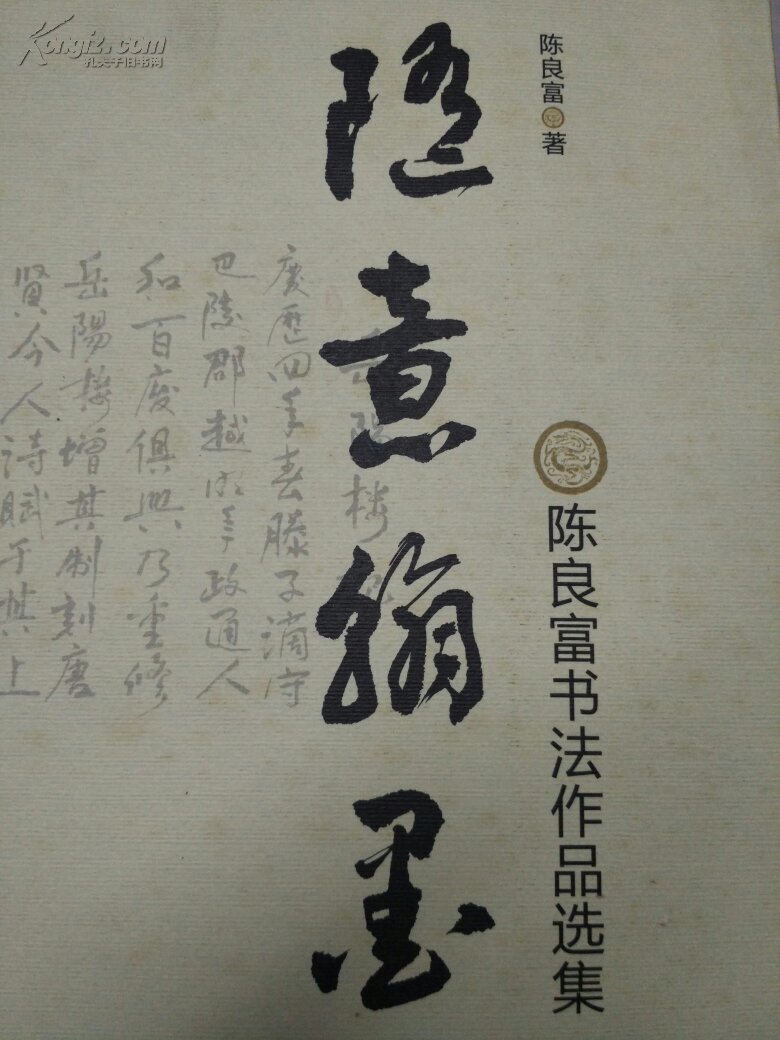 陈良富 著
陈良富书法作品选集
随意翰墨
岳陽楼记
慶歷四年春滕子謫守
巴陵郡越明年政通人
和百废俱興乃重修
岳陽楼增其制刻唐
賢今人詩賦于其上
Kongfz.com
孔夫子旧书网